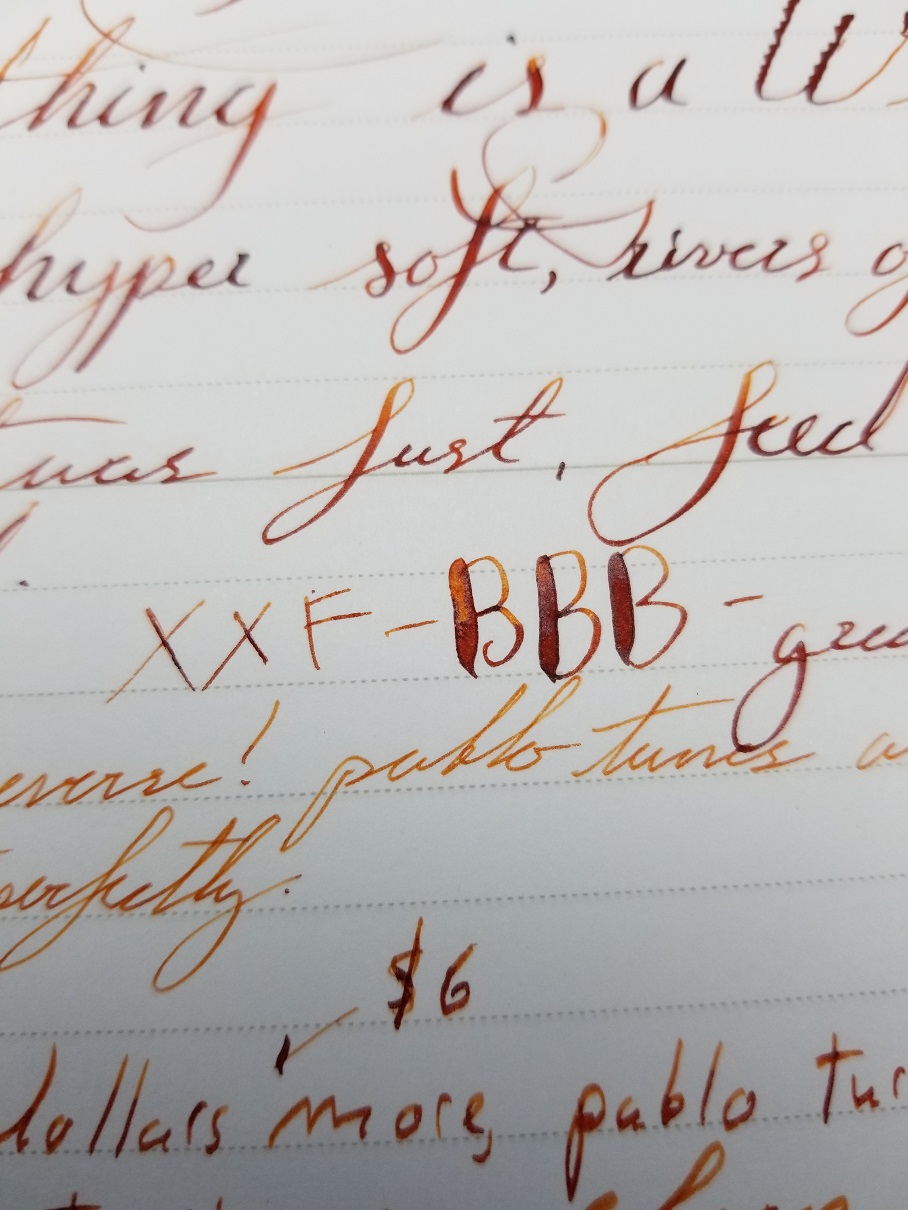 thing is a W
hyper soft, rivers of
was fust, feed
XXF-BBB-
everse! pablo tunes
perfectly.
$6
dollars more, pablo tur